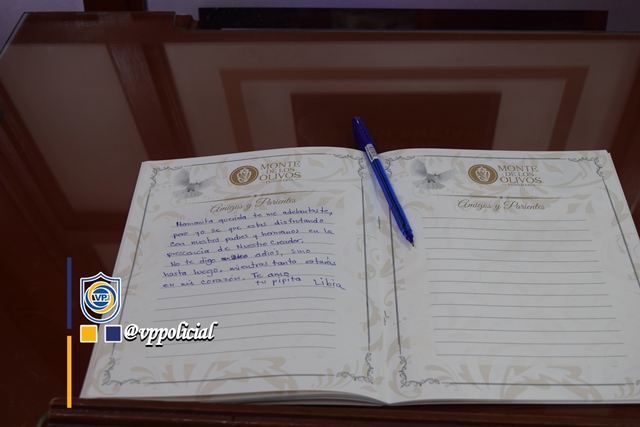 MONTE
DE LOS
OLIVOS
Amigos y Parientes
Mamanita querida te me adelantaste,
pero yo se que estas disfrutando
con nuestros padres y hermanos en la
presencia de Nuestro Creador,
No te digo adios, sino
hasta luego, mientras tanto estarás
en mi corazón. Te amo
tu pipita Libia
MONTE
DE LOS
OLIVOS
Amigos y Parientes
VPP
@vppolicial